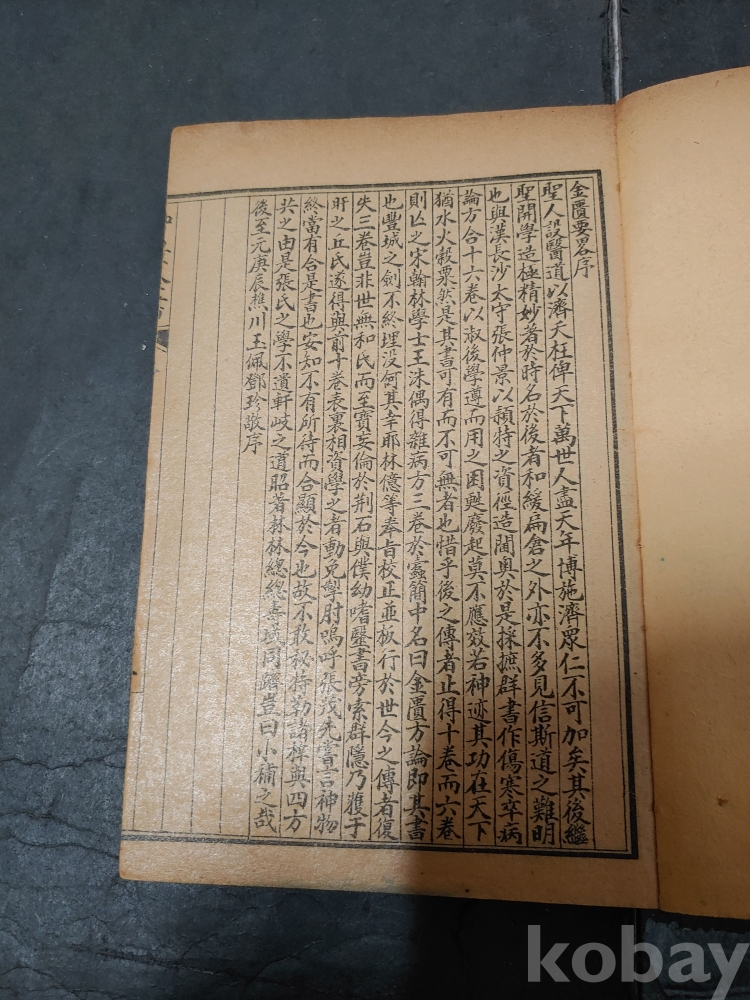 金匱要畧序
聖人設醫道以濟夭枉俾天下萬世人盡天年博施濟眾仁不可加矣其後繼
聖開學造極精妙著於時名於後者和緩扁倉之外亦不多見信斯道之難明
也與漢長沙太守張仲景以穎特之資徑造閫奧於是採摭群書作傷寒卒病
論方合十六卷以淑後學遵而用之困甦廢起莫不應效若神迹其功在天下
猶水火穀粟然是其書可有而不可無者也惜乎後之傳者止得十卷而六卷
則亾之宋翰林學士王洙偶得雜病方三卷於蠹簡中名曰金匱方論即其書
也豐城之劍不終埋没何其幸耶林億等奉旨校正並板行於世今之傳者復
失三卷豈非世無和氏而至寶妄倫於荆石與僕幼嗜醫書旁索群隱乃獲于
盱之丘氏遂得與前十卷表裏相資學之者動免掣肘嗚呼張茂先嘗言神物
終當有合是書也安知不有所待而合顯於今也故不敢祕特勒諸梓與四方
共之由是張氏之學不遺軒岐之道昭著林林總總壽域同躋豈曰小補之哉
後至元庚辰樵川玉佩鄧珍敬序
kobay